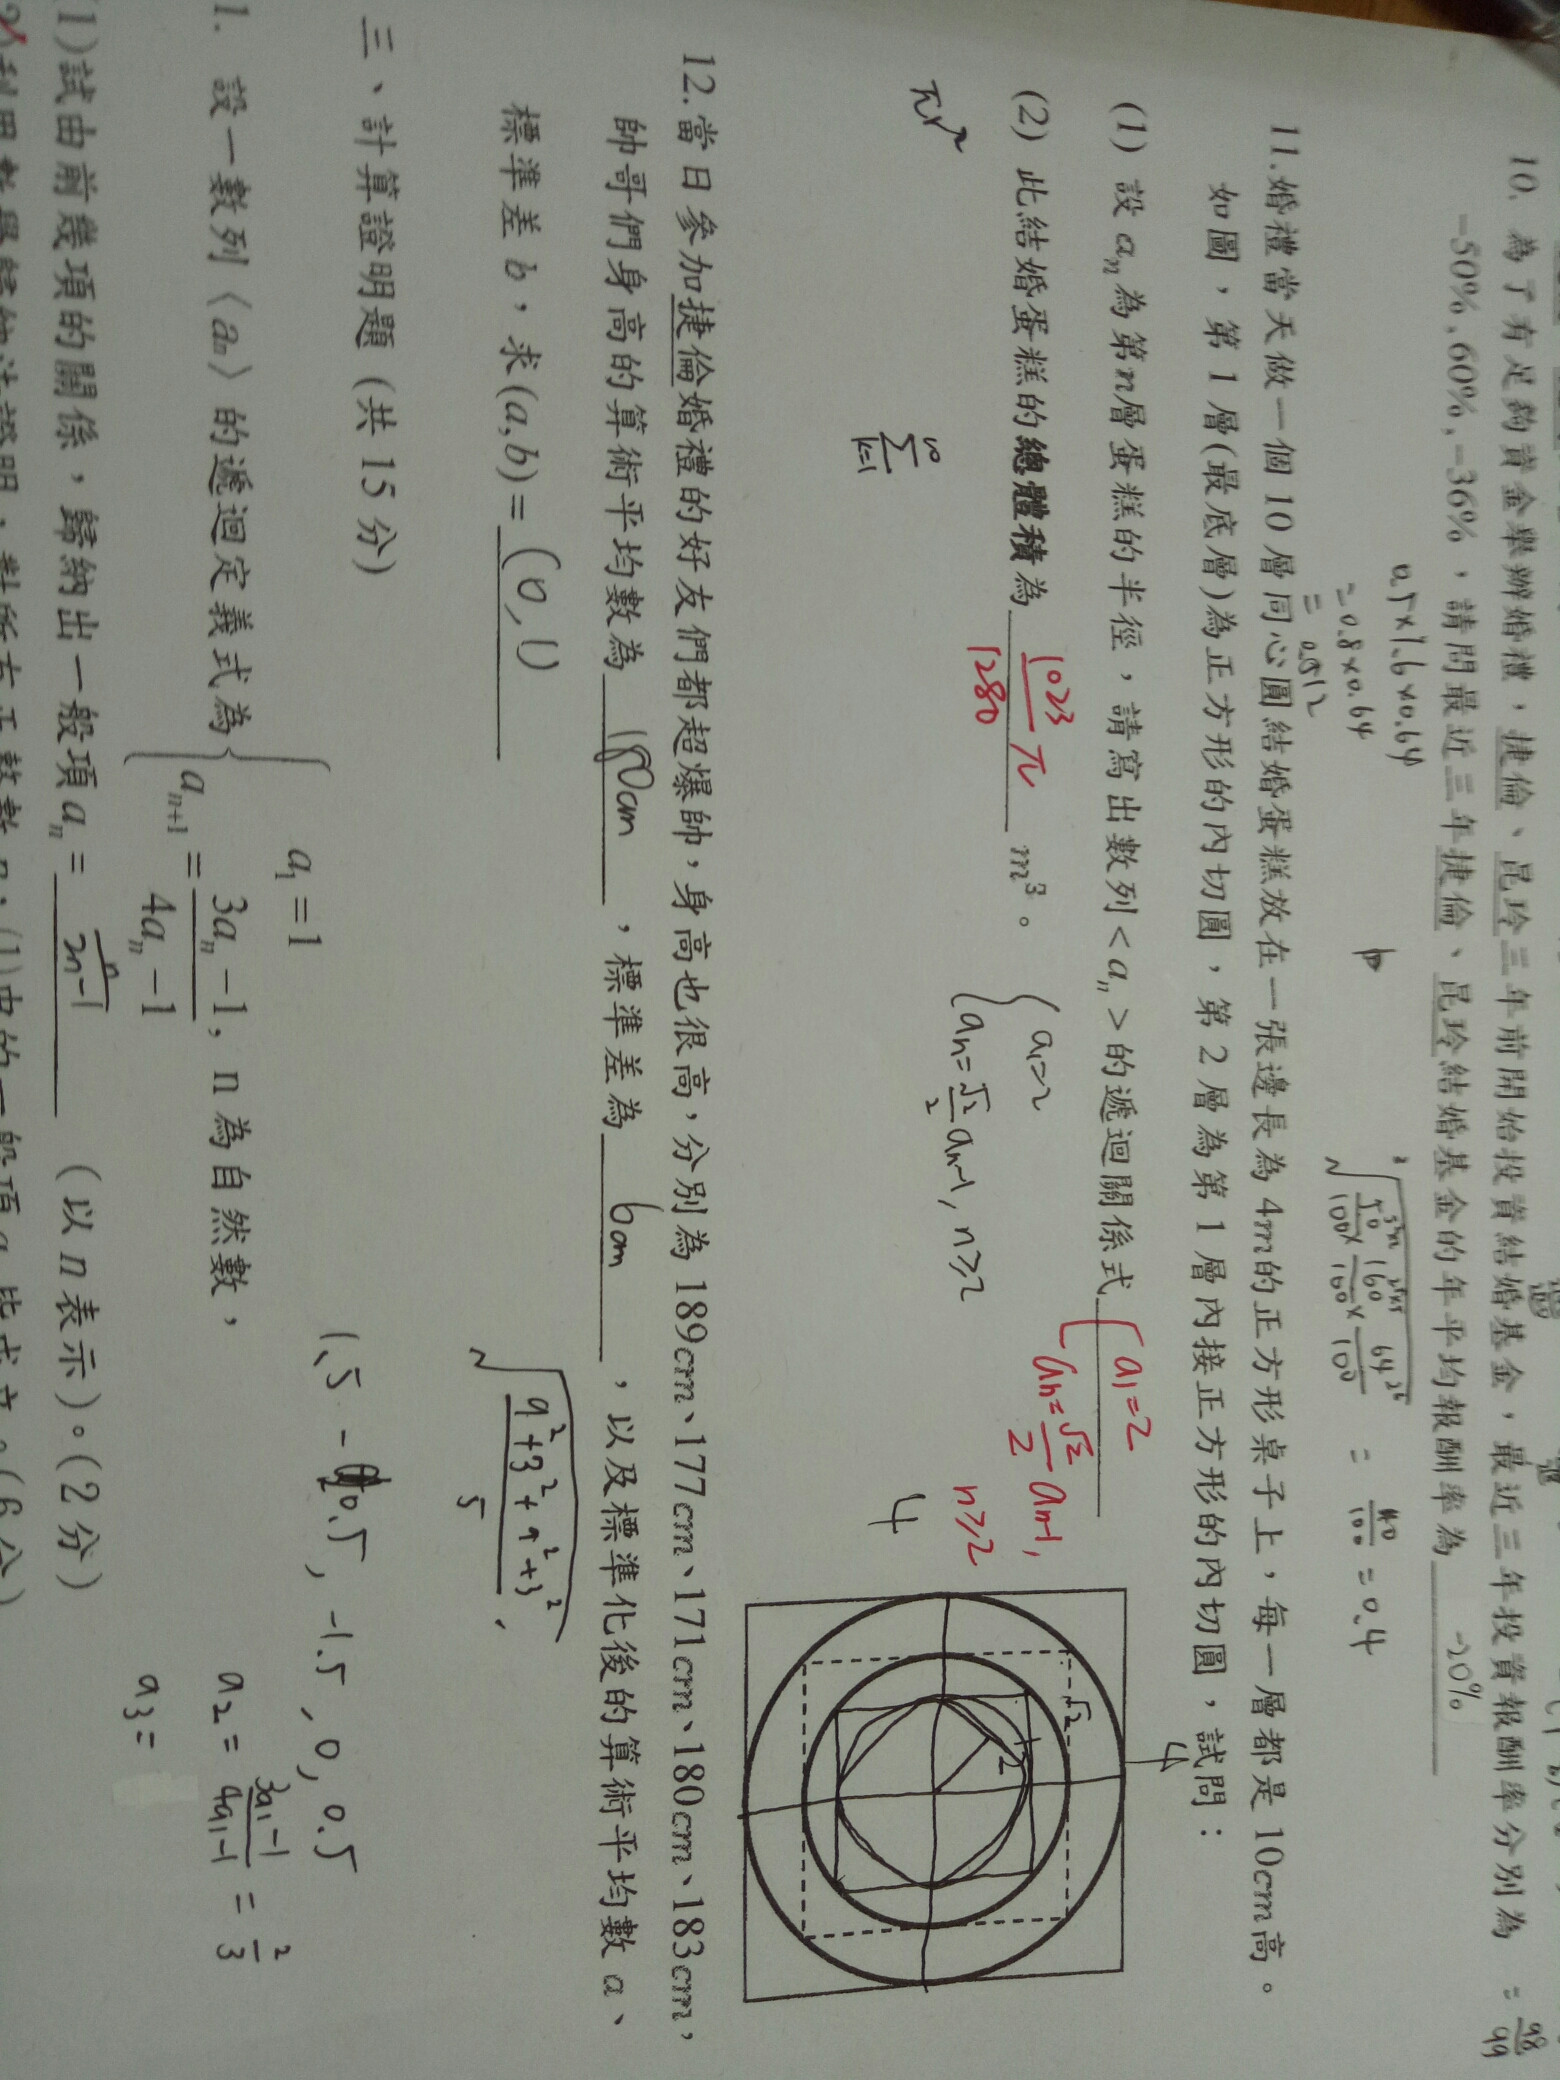 10. 為了有足夠資金舉辦婚禮，捷倫、昆玲三年前開始投資結婚基金，最近三年投資報酬率分別為
= 98/99
-50%,60%,-36%，請問最近三年捷倫、昆玲結婚基金的年平均報酬率為 -20%
0.5×1.6×0.64
=0.8×0.64
= 0.512
= 0.4
11.婚禮當天做一個10層同心圓結婚蛋糕放在一張邊長為4m的正方形桌子上，每一層都是10cm高。
如圖，第1層(最底層)為正方形的內切圓，第2層為第1層內接正方形的內切圓，試問：
(1) 設aₙ為第n層蛋糕的半徑，請寫出數列<aₙ>的遞迴關係式 { a₁=2
aₙ=√2/2 aₙ₋₁,
n≥2
(2) 此結婚蛋糕的總體積為 1023/1280 π m³。
{ a₁=2
aₙ=√2/2 aₙ₋₁, n≥2
πr²
4
4
√2
12.當日參加捷倫婚禮的好友們都超爆帥,身高也很高,分別為189cm、177cm、171cm、180cm、183cm,
帥哥們身高的算術平均數為 180cm ，標準差為 6cm ，以及標準化後的算術平均數a、
標準差b，求(a,b)= (0,1)
√(9²+3²+9²+3²/5)
三、計算證明題(共15分)
1.5 -0.5, -1.5, 0, 0.5
1. 設一數列〈aₙ〉的遞迴定義式為 { a₁=1
aₙ₊₁= (3aₙ-1)/(4aₙ-1), n為自然數，
a₂= (3a₁-1)/(4a₁-1) = 2/3
a₃=
(1)試由前幾項的關係，歸納出一般項aₙ= n/(2n-1) (以n表示)。(2分)